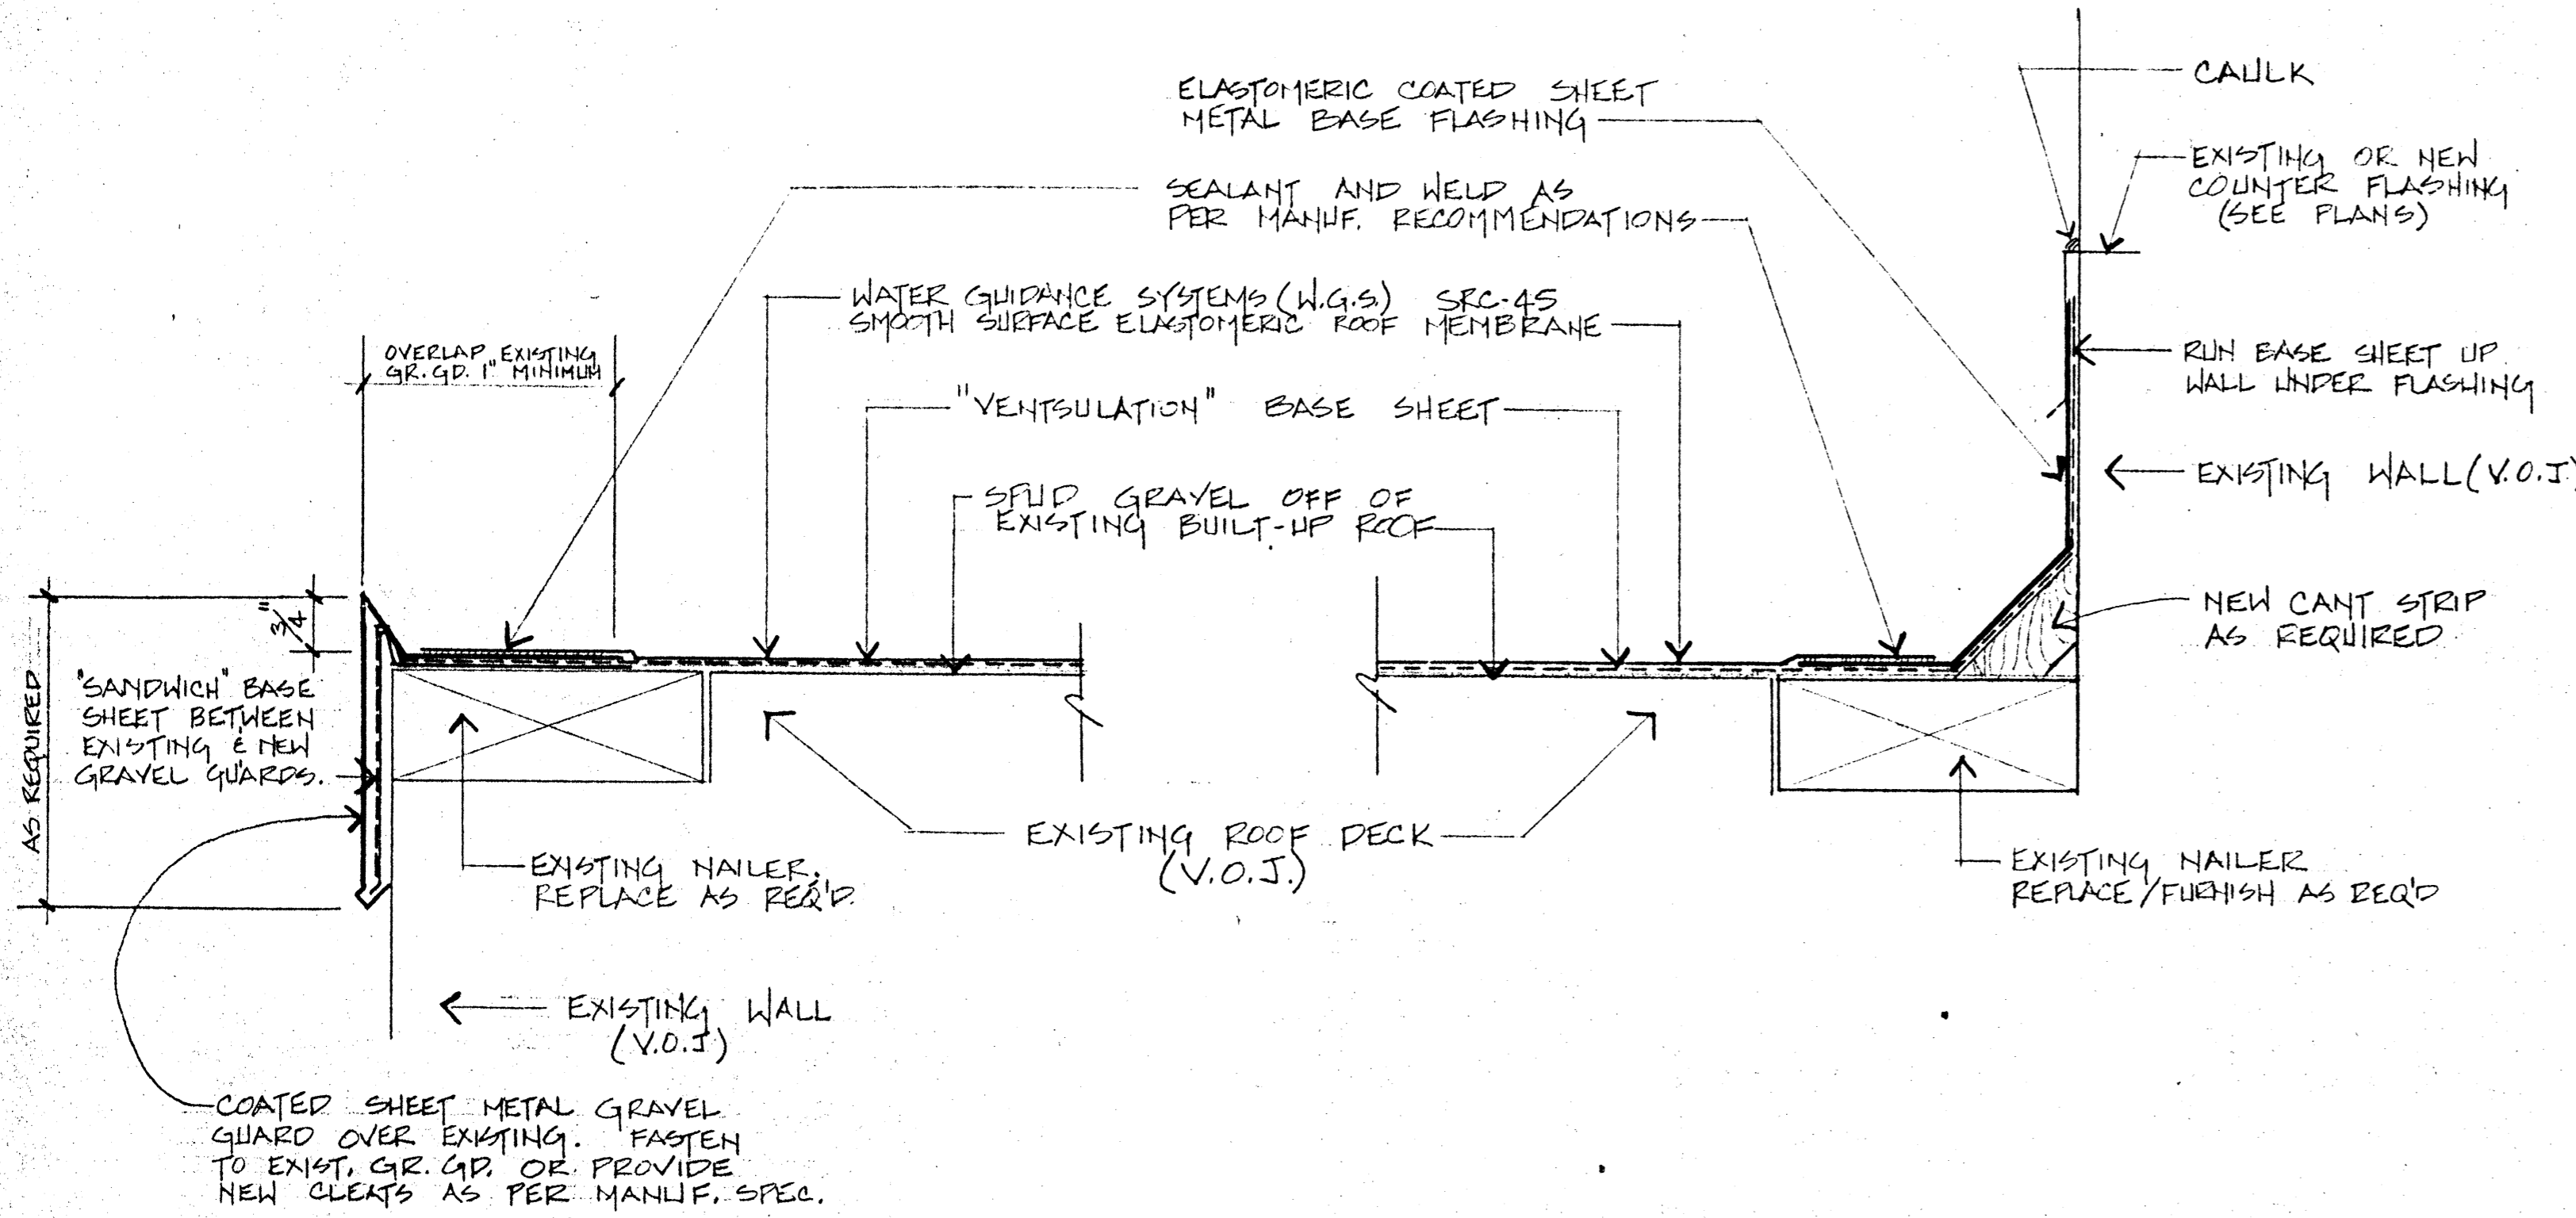 CAULK
ELASTOMERIC COATED SHEET
METAL BASE FLASHING
EXISTING OR NEW
COUNTER FLASHING
(SEE PLANS)
SEALANT AND WELD AS
PER MANUF. RECOMMENDATIONS
WATER GUIDANCE SYSTEMS (W.G.S.) SRC-45
SMOOTH SURFACE ELASTOMERIC ROOF MEMBRANE
OVERLAP EXISTING
GR. GD. 1" MINIMUM
RUN BASE SHEET UP
WALL UNDER FLASHING
"VENTSULATION" BASE SHEET
EXISTING WALL (V.O.J.)
SPUD GRAVEL OFF OF
EXISTING BUILT-UP ROOF
3/4"
NEW CANT STRIP
AS REQUIRED
AS REQUIRED
"SANDWICH" BASE
SHEET BETWEEN
EXISTING & NEW
GRAVEL GUARDS.
EXISTING ROOF DECK
(V.O.J.)
EXISTING NAILER.
REPLACE AS REQ'D.
EXISTING NAILER
REPLACE/FURNISH AS REQ'D
EXISTING WALL
(V.O.J.)
COATED SHEET METAL GRAVEL
GUARD OVER EXISTING. FASTEN
TO EXIST. GR. GD. OR PROVIDE
NEW CLEATS AS PER MANUF. SPEC.